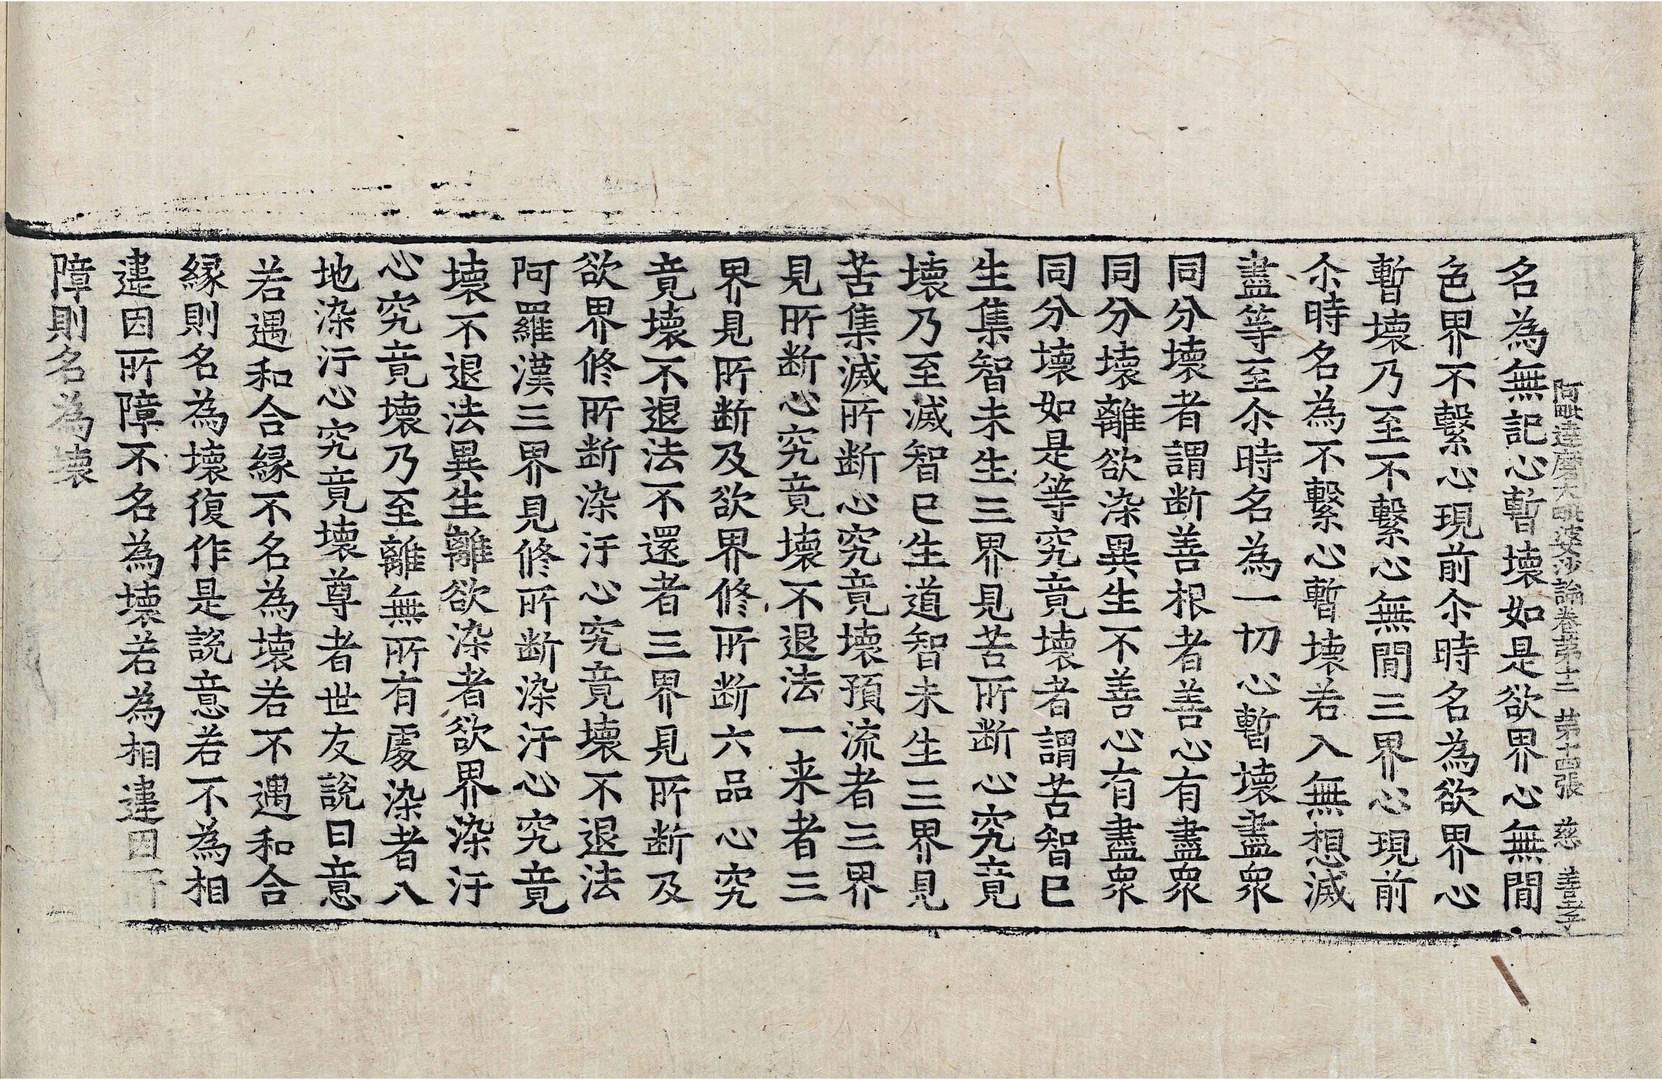 阿毗達磨大毗婆沙論卷苐十二 苐十四張 慈
名為無記心暫壞如是欲界心無閒
色界不繫心現前尒時名為欲界心
暫壞乃至不繫心無閒三界心現前
尒時名為不繫心暫壞若入無想滅
盡等至尒時名為一切心暫壞盡衆
同分壞者謂断善根者善心有盡衆
同分壞離欲染異生不善心有盡衆
同分壞如是等究竟壞者謂苦智已
生集智未生三界見苦所断心究竟
壞乃至滅智已生道智未生三界見
苦集滅所断心究竟壞預流者三界
見所断心究竟壞不退法一来者三
界見所断及欲界修所断六品心究
竟壞不退法不還者三界見所断及
欲界修所断染汙心究竟壞不退法
阿羅漢三界見修所断染汙心究竟
壞不退法異生離欲染者欲界染汙
心究竟壞乃至離無所有處染者八
地染汙心究竟壞尊者世友說曰意
若遇和合緣不名為壞若不遇和合
緣則名為壞復作是說意若不為相
違因所障不名為壞若為相違因所
障則名為壞